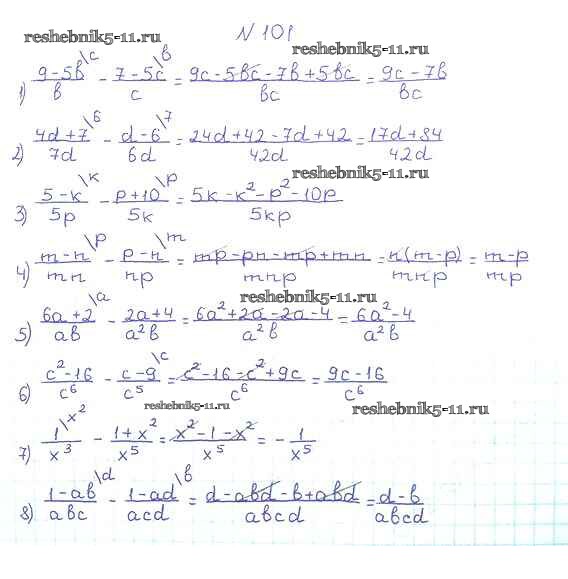 N 101
reshebnik5-11.ru
reshebnik5-11.ru
1) (9-5b)/b \c - (7-5c)/c \b = (9c-5bc-7b+5bc)/bc = (9c-7b)/bc
2) (4d+7)/7d \6 - (d-6)/6d \7 = (24d+42-7d+42)/42d = (17d+84)/42d
reshebnik5-11.ru
3) (5-k)/5p \k - (p+10)/5k \p = (5k-k²-p²-10p)/5kp
4) (m-n)/mn \p - (p-n)/np \m = (mp-pn-mp+mn)/mnp = n(m-p)/mnp = (m-p)/mp
reshebnik5-11.ru
5) (6a+2)/ab \a - (2a+4)/a²b = (6a²+2a-2a-4)/a²b = (6a²-4)/a²b
6) (c²-16)/c⁶ - (c-9)/c⁵ \c = (c²-16-c²+9c)/c⁶ = (9c-16)/c⁶
reshebnik5-11.ru
reshebnik5-11.ru
7) 1/x³ \x² - (1+x²)/x⁵ = (x²-1-x²)/x⁵ = -1/x⁵
8) (1-ab)/abc \d - (1-ad)/acd \b = (d-abd-b+abd)/abcd = (d-b)/abcd